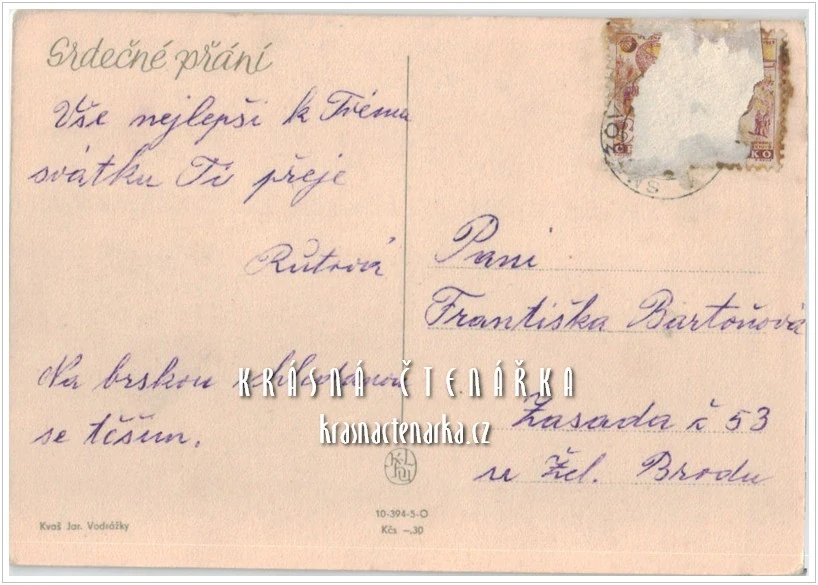 Srdečné přání
Vše nejlepši k Tvému
svátku Ti přeje
Růtová
Na brskou
se těšim.
Paní
Františka Bartoňová
Zasada č 53
u Žel. Brodu
KRÁSNÁ ČTENÁŘKA
krasnactenarka.cz
Kvaš Jar. Vodrážky
10-394-5-O
Kčs –,30